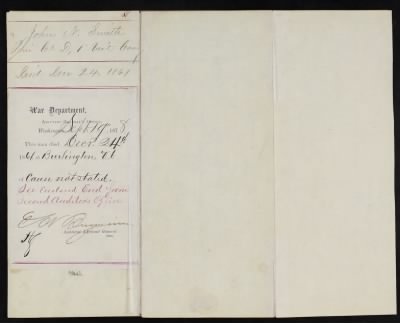 John N. Smith
Co D, 1" Vt Cav
Died Dec 24, 1861
War Department,
Adjutant General's Office,
Washington, Sept 19", 1878
This man died Decr. 24th
1861 at Burlington Vt
of Cause not stated.
See Enclosed End from
Second Auditors Office
Assistant Adjutant General